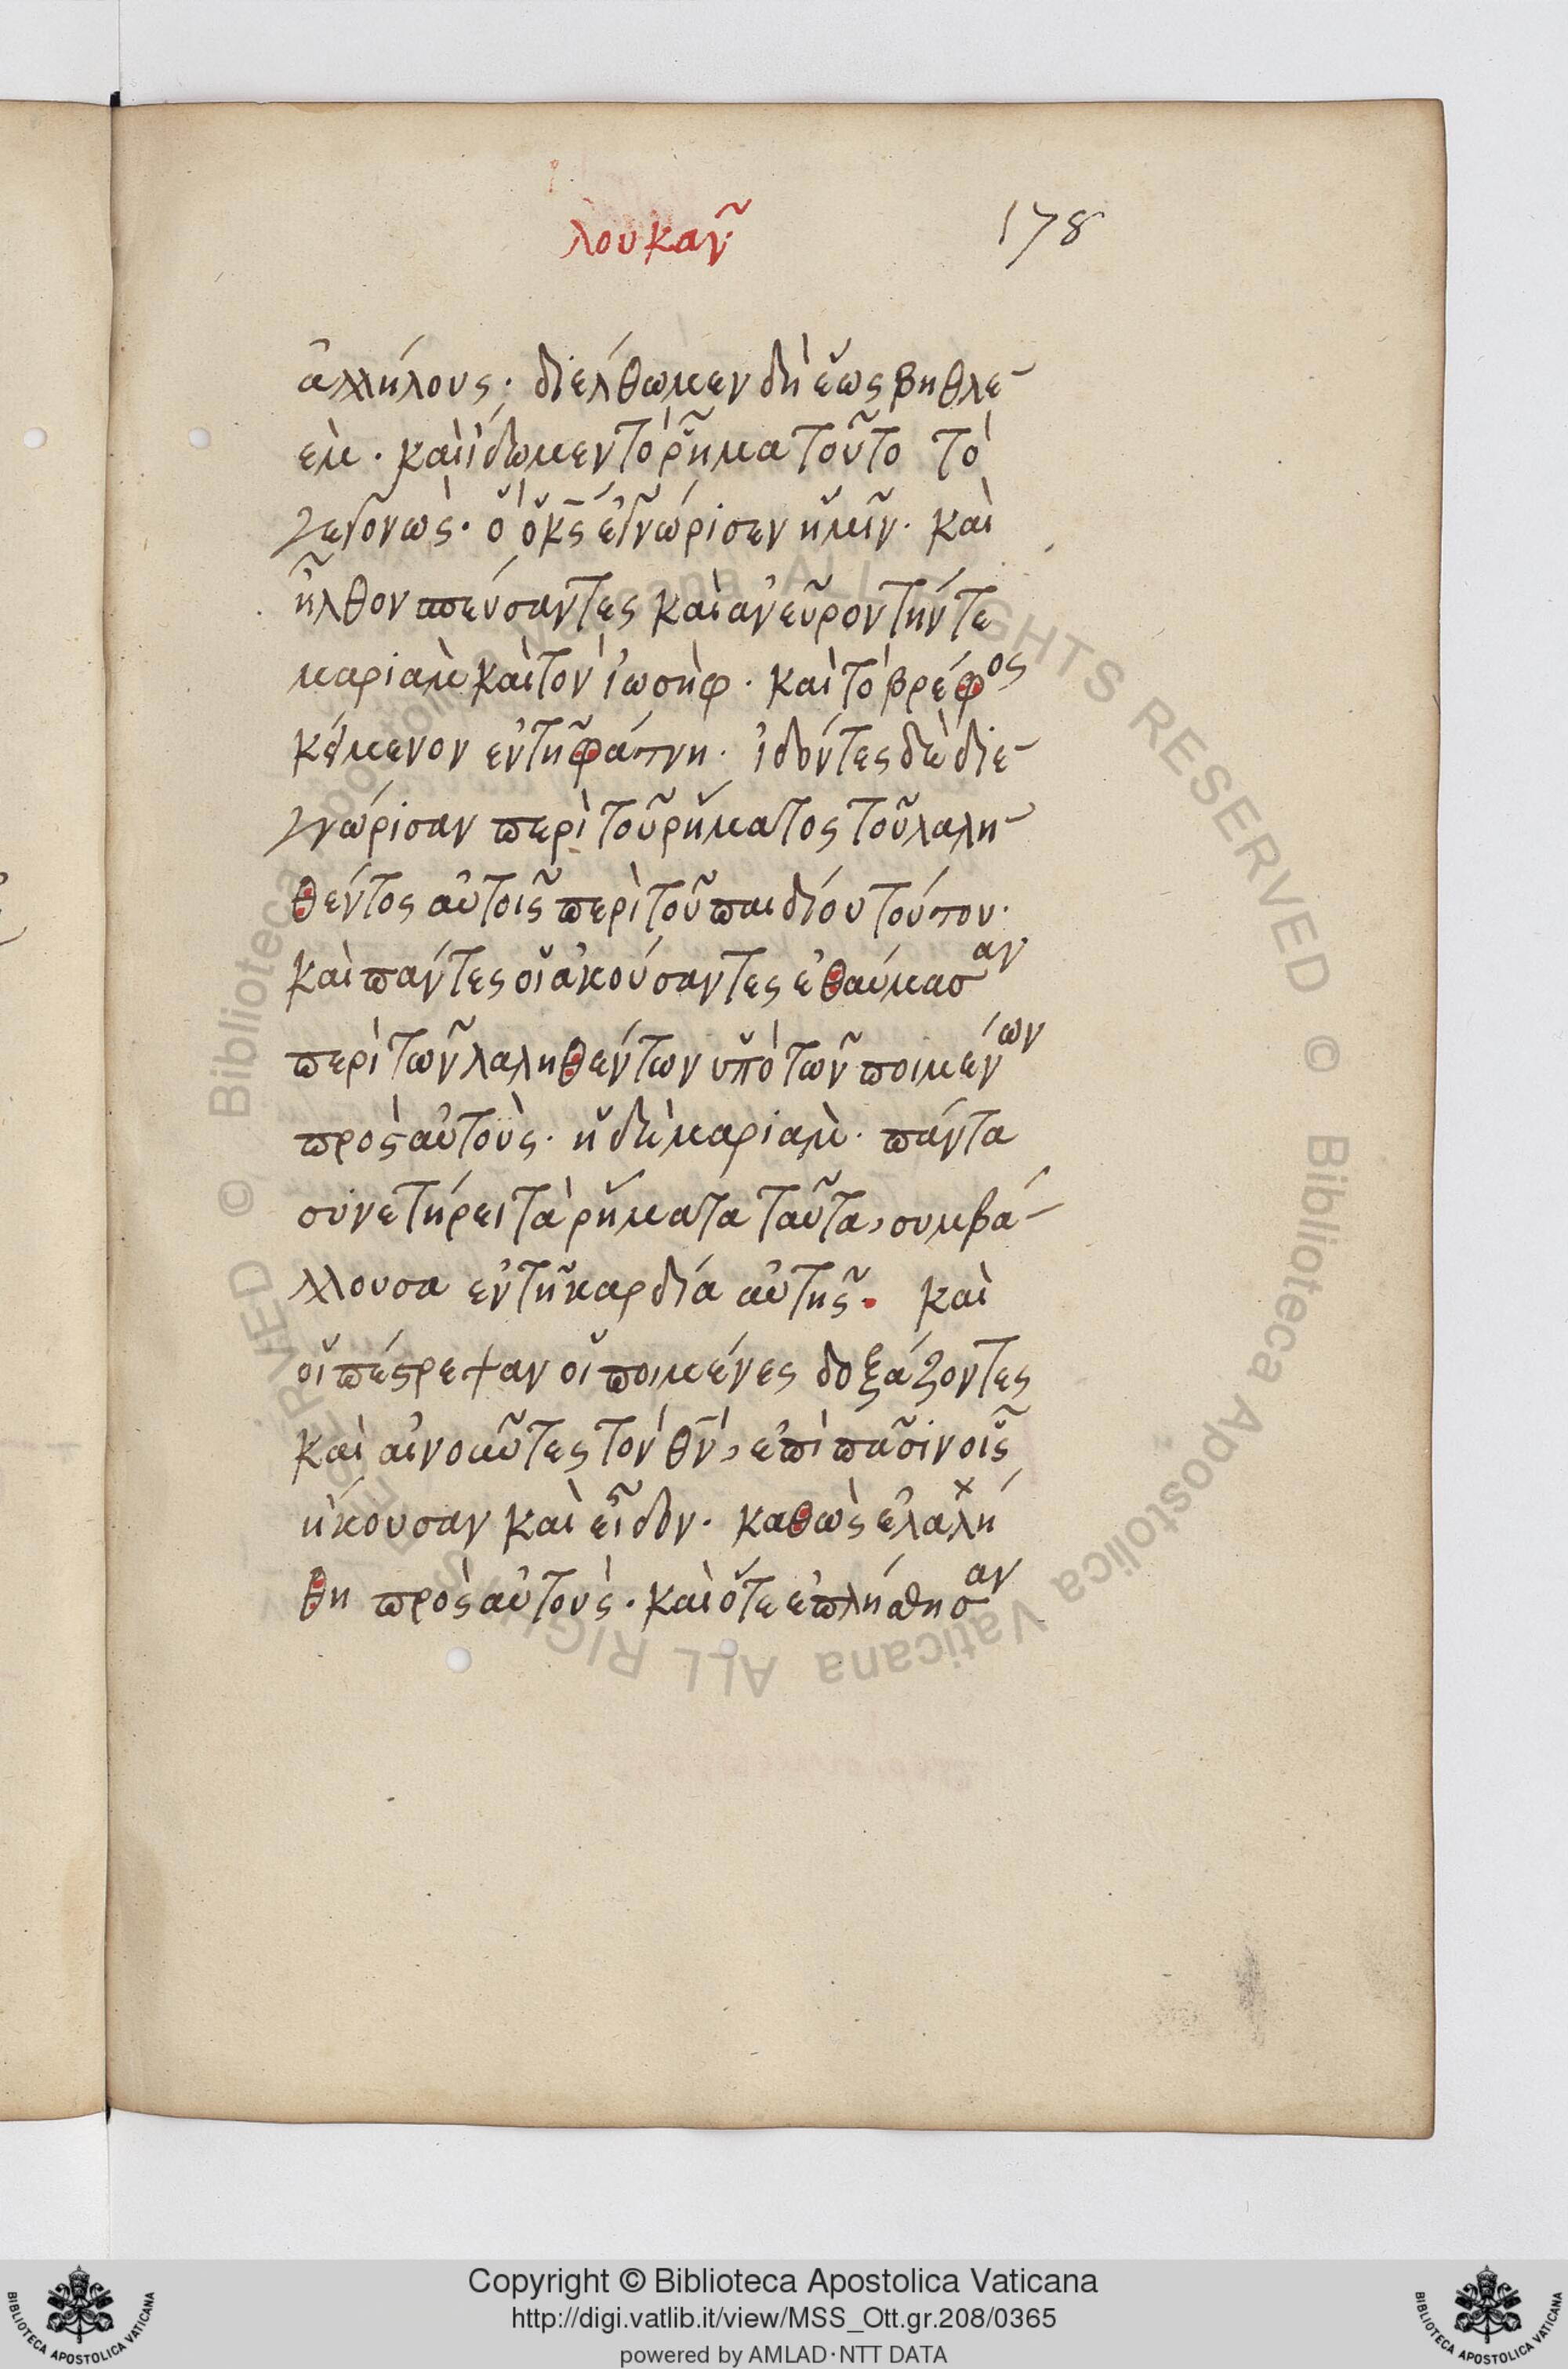 λουκαν̃
178
ἀλλήλους· διέλθωμεν δὴ ἕως βηθλε-
ὲμ· καὶ ἴδωμεν τὸ ῥῆμα τοῦτο τὸ
γεγονὼς· ὃ ὁ κ̅ς̅ ἐγνώρισεν ἡμῖν· καὶ
ἦλθον σπεύσαντες καὶ ἀνεῦρον τήν τε
μαριὰμ καὶ τὸν ἰωσὴφ· καὶ τὸ βρέφος
κείμενον ἐν τῇ φάτνη· ἰδόντες δὲ διε-
γνώρισαν περὶ τοῦ ῥήματος τοῦ λαλη-
θέντος αὐτοῖς περὶ τοῦ παιδίου τούτου·
καὶ πάντες οἱ ἀκούσαντες ἐθαύμασαν
περὶ τῶν λαληθέντων ὑπὸ τῶν ποιμένων
πρὸς αὐτοὺς· ἡ δὲ μαριὰμ· πάντα
συνετήρει τὰ ῥήματα ταῦτα, συμβά-
λλουσα ἐν τῇ καρδία αὐτῆς· καὶ
οἱπέστρεψαν οἱ ποιμένες δοξάζοντες
καὶ αἰνοῦντες τὸν θ̅ν̅, ἐπὶ πᾶσιν οἷς
ἤκουσαν καὶ εἶδον· καθὼς ἐλαλή
θη πρὸς αὐτοὺς· καὶ ὅτε ἐπλήσθησαν
Copyright © Biblioteca Apostolica Vaticana
http://digi.vatlib.it/view/MSS_Ott.gr.208/0365
powered by AMLAD·NTT DATA
BIBLIOTECA APOSTOLICA VATICANA
BIBLIOTECA APOSTOLICA VATICANA
© Biblioteca Apostolica Vaticana ALL RIGHTS RESERVED © Biblioteca Apostolica Vaticana ALL RIGHTS RESERVED